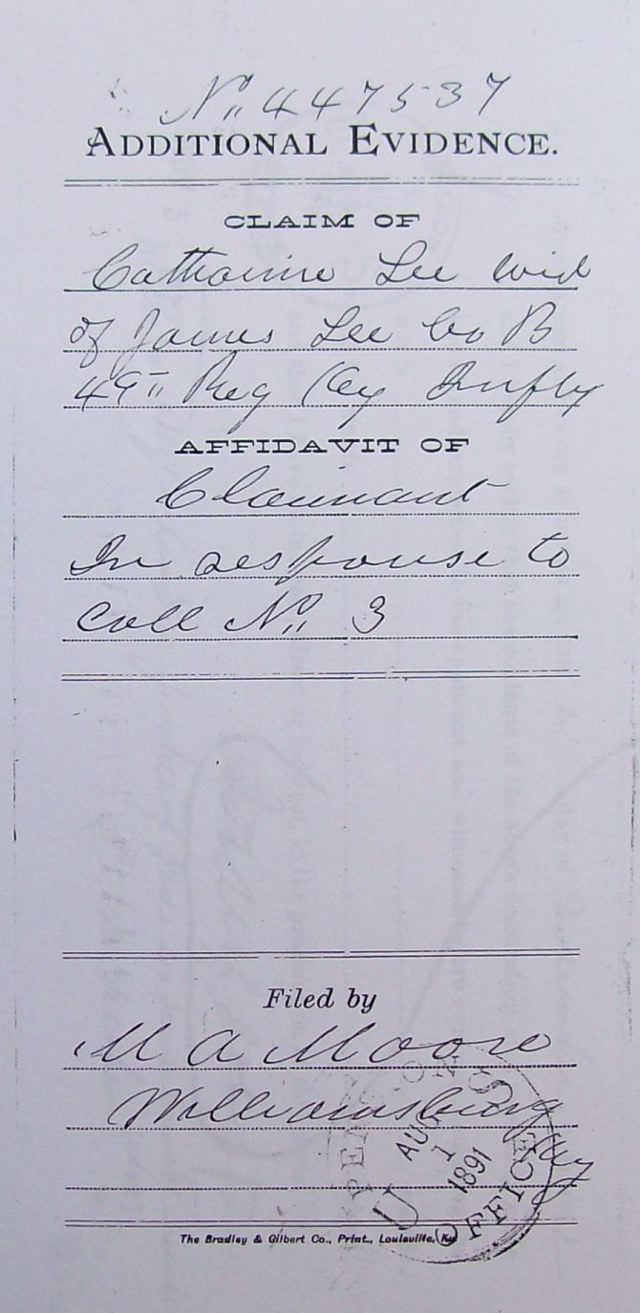 No. 447537
ADDITIONAL EVIDENCE.
CLAIM OF
Catharine Lee wid
of James Lee Co B
49" Reg Ky Infty
AFFIDAVIT OF
Claimant
In response to
Call No. 3
Filed by
M A Moore
Williamsburg
Ky
U S PENSION OFFICE
AUG 1 1891
The Bradley & Gilbert Co., Print., Louisville, Ky